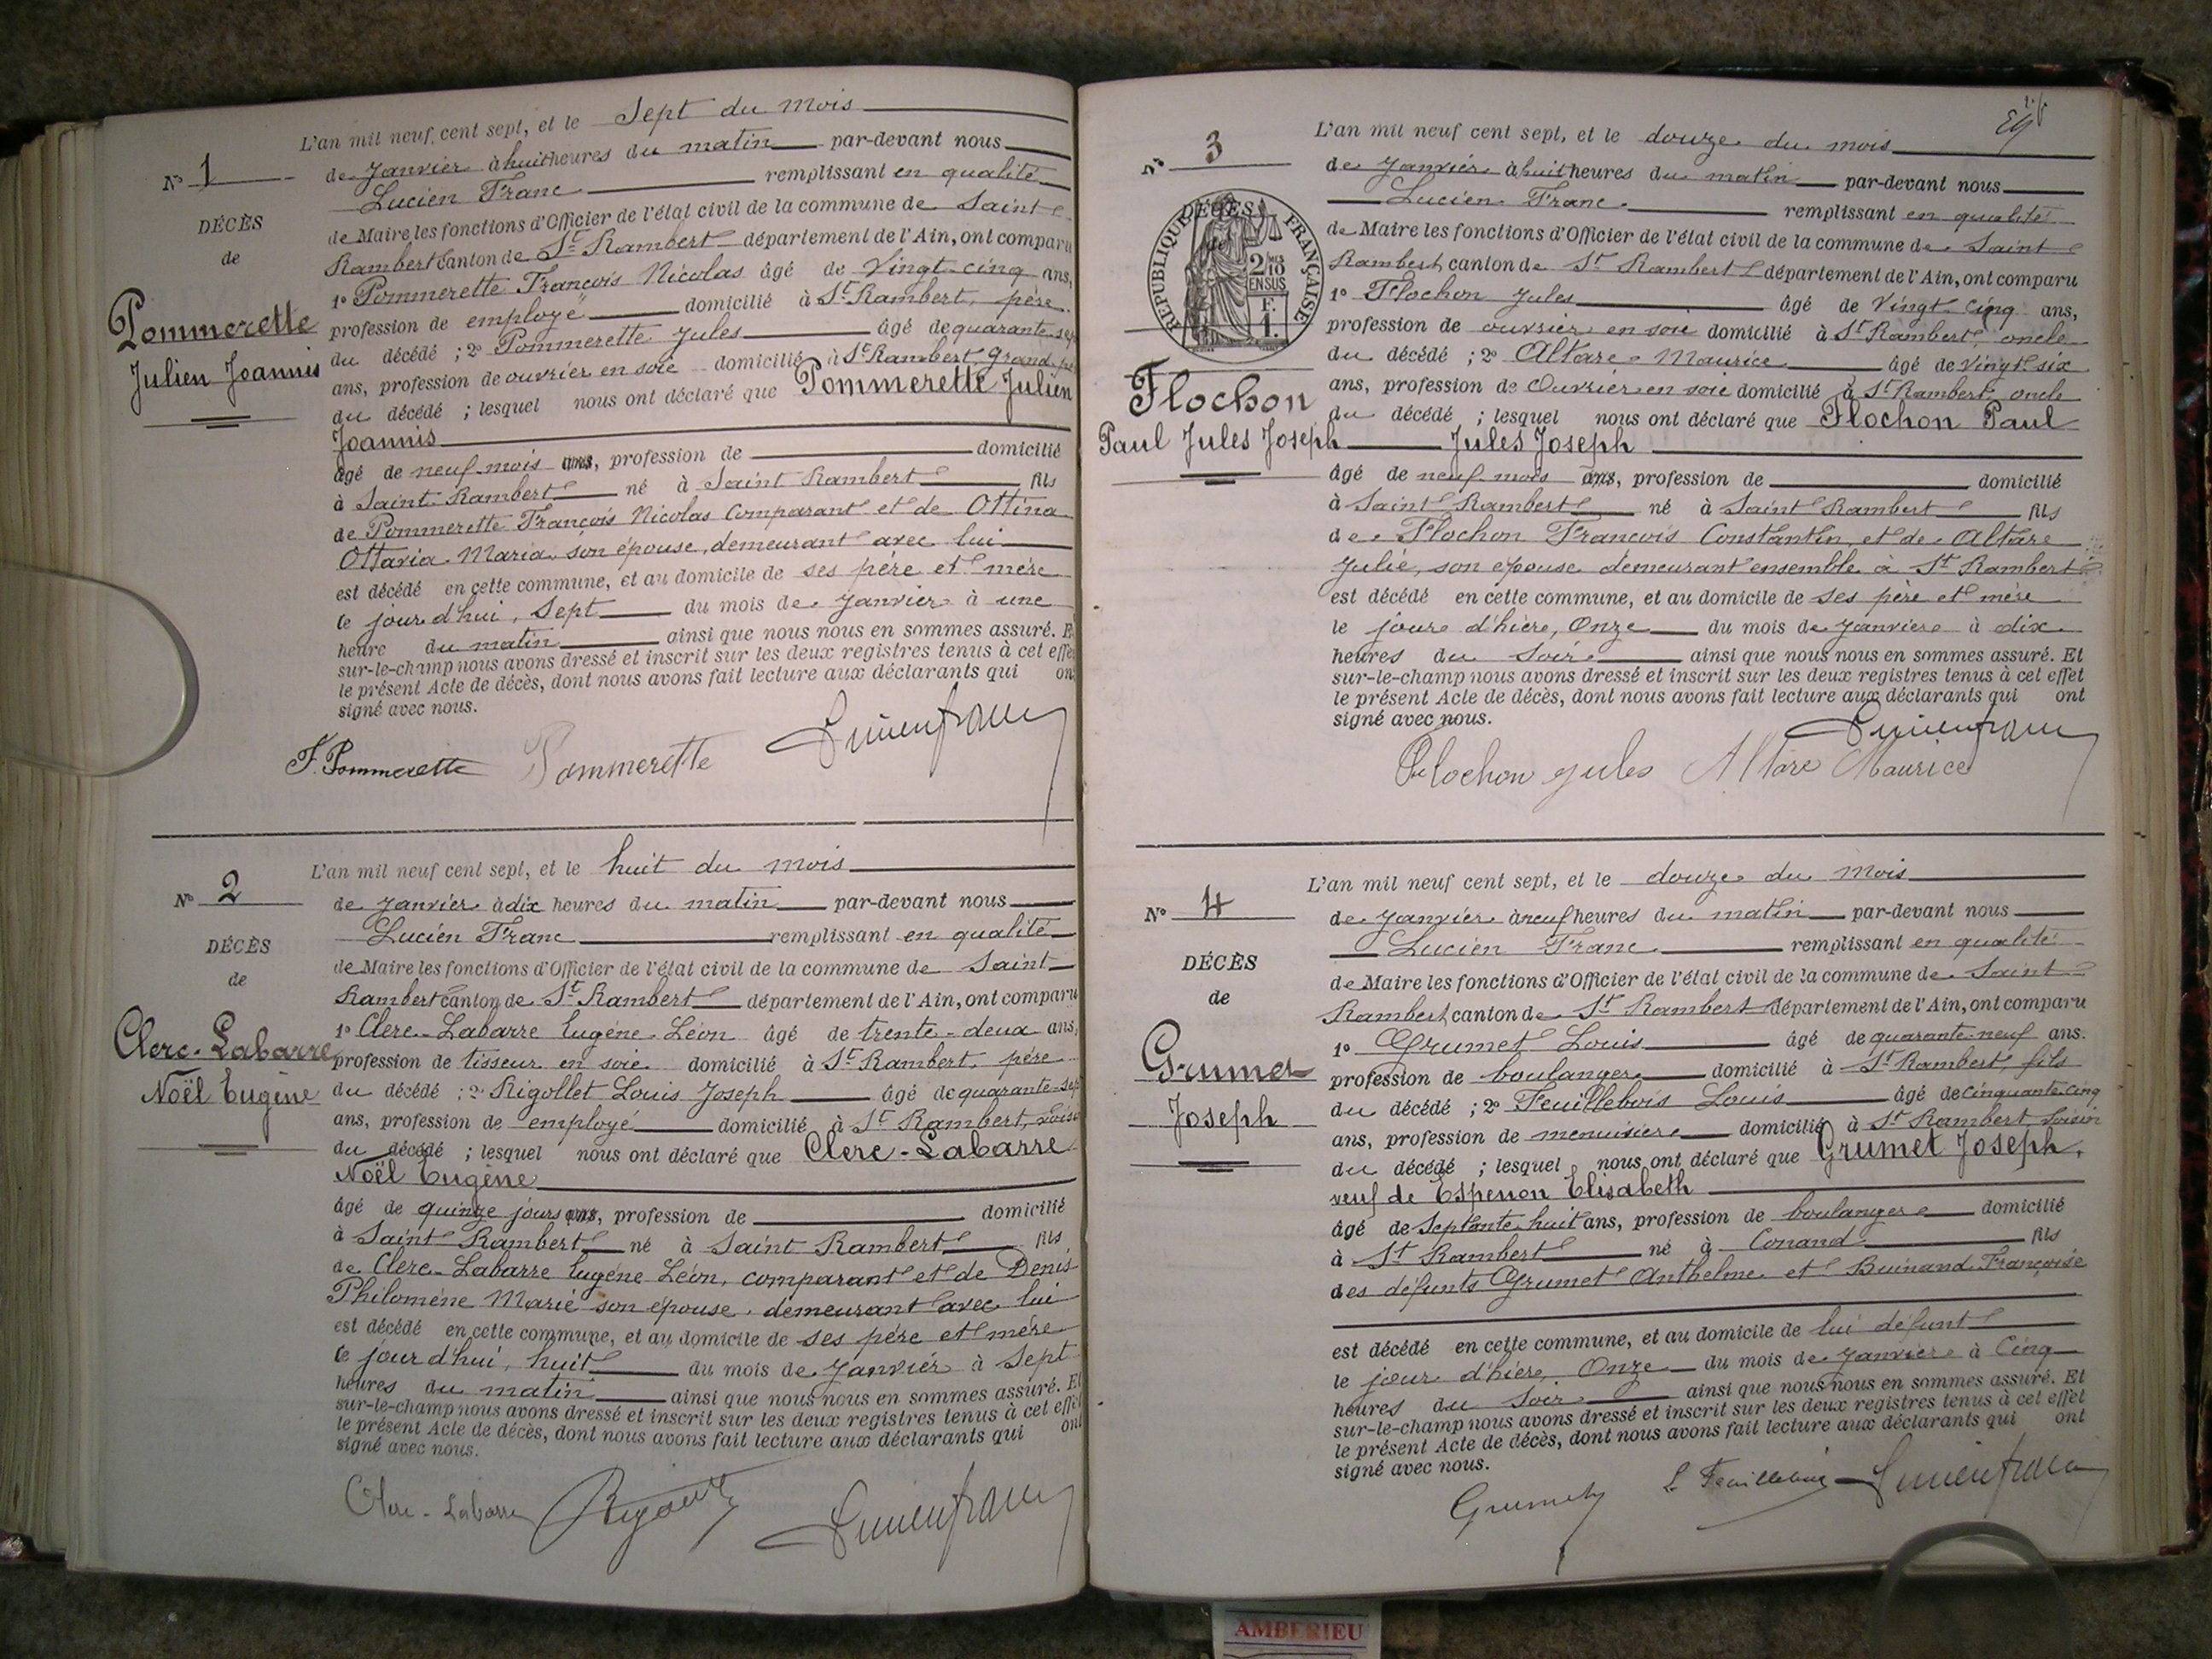 L'an mil neuf cent sept, et le Sept du mois
N° 1
de Janvier à huit heures du matin par-devant nous
Lucien Franc remplissant en qualité
DÉCÈS
de Maire les fonctions d'Officier de l'état civil de la commune de Saint
de
Rambert canton de St Rambert département de l'Ain, ont comparu
1° Pommerette François Nicolas âgé de Vingt-cinq ans,
Pommerette
profession de employé domicilié à St Rambert, père
du décédé ; 2° Pommerette Jules âgé de quarante sep
Julien Joannis
ans, profession de ouvrier en soie domicilié à St Rambert, Grand pè
du décédé ; lesquel nous ont déclaré que Pommerette Julien
Joannis
âgé de neuf mois ans, profession de domicilié
à Saint Rambert né à Saint Rambert fils
de Pommerette François Nicolas Comparant et de Ottina
Ottavia Maria, son épouse, demeurant avec lui
est décédé en cette commune, et au domicile de ses père et mère
le jour d'hui, Sept du mois de Janvier à une
heure du matin ainsi que nous nous en sommes assuré. E
sur-le-champ nous avons dressé et inscrit sur les deux registres tenus à cet effe
le présent Acte de décès, dont nous avons fait lecture aux déclarants qui on
signé avec nous.
F. Pommerette Pommerette Lucien Franc
L'an mil neuf cent sept, et le huit du mois
N° 2
de Janvier à dix heures du matin par-devant nous
Lucien Franc remplissant en qualité
DÉCÈS
de Maire les fonctions d'Officier de l'état civil de la commune de Saint
de
Rambert canton de St Rambert département de l'Ain, ont comparu
1° Clerc-Labarre Eugène Léon âgé de trente-deux ans,
Clerc-Labarre
profession de tisseur en soie domicilié à St Rambert, père
Noël Eugène
du décédé ; 2° Rigollet Louis Joseph âgé de quarante-sep
ans, profession de employé domicilié à St Rambert, voisi
du décédé ; lesquel nous ont déclaré que Clerc-Labarre
Noël Eugène
âgé de quinze jours ans, profession de domicilié
à Saint Rambert né à Saint Rambert fils
de Clerc-Labarre Eugène Léon, comparant et de Denis
Philomène Marie son épouse, demeurant avec lui
est décédé en cette commune, et au domicile de ses père et mère
le jour d'hui, huit du mois de Janvier à Sept
heures du matin ainsi que nous nous en sommes assuré. Et
sur-le-champ nous avons dressé et inscrit sur les deux registres tenus à cet effet
le présent Acte de décès, dont nous avons fait lecture aux déclarants qui ont
signé avec nous.
Clerc-Labarre Lucien Franc
L'an mil neuf cent sept, et le douze du mois
N° 3
de Janvier à huit heures du matin par-devant nous
Lucien Franc remplissant en qualité
DÉCÈS
RÉPUBLIQUE FRANÇAISE
2/10 EN SUS
F. 1
de Maire les fonctions d'Officier de l'état civil de la commune de Saint
Rambert canton de St Rambert département de l'Ain, ont comparu
1° Flochon Jules âgé de Vingt cinq ans,
profession de ouvrier en soie domicilié à St Rambert, oncle
du décédé ; 2° Altare Maurice âgé de vingt six
Flochon
ans, profession de Ouvrier en soie domicilié à St Rambert, oncle
du décédé ; lesquel nous ont déclaré que Flochon Paul
Paul Jules Joseph
Jules Joseph
âgé de neuf mois ans, profession de domicilié
à Saint Rambert né à Saint Rambert fils
de Flochon François Constantin et de Altare
Julie, son épouse demeurant ensemble à St Rambert
est décédé en cette commune, et au domicile de ses père et mère
le jour d'hier, Onze du mois de Janvier à dix
heures du soir ainsi que nous nous en sommes assuré. Et
sur-le-champ nous avons dressé et inscrit sur les deux registres tenus à cet effet
le présent Acte de décès, dont nous avons fait lecture aux déclarants qui ont
signé avec nous.
Lucien Franc
Flochon Jules Altare Maurice
L'an mil neuf cent sept, et le douze du mois
N° 4
de Janvier à neuf heures du matin par-devant nous
Lucien Franc remplissant en qualité
DÉCÈS
de Maire les fonctions d'Officier de l'état civil de la commune de Saint
de
Rambert canton de St Rambert département de l'Ain, ont comparu
1° Grumet Louis âgé de quarante-neuf ans.
Grumet
profession de boulanger domicilié à St Rambert, fils
du décédé ; 2° Feuillebois Louis âgé de cinquante cinq
Joseph
ans, profession de menuisier domicilié à St Rambert, voisin
du décédé ; lesquel nous ont déclaré que Grumet Joseph,
veuf de Espenon Elisabeth
âgé de Septante-huit ans, profession de boulanger domicilié
à St Rambert né à Conand fils
des défunts Grumet Anthelme et Buinand Françoise
est décédé en cette commune, et au domicile de lui défunt
le jour d'hier, Onze du mois de Janvier à Cinq
heures du Soir ainsi que nous nous en sommes assuré. Et
sur-le-champ nous avons dressé et inscrit sur les deux registres tenus à cet effet
le présent Acte de décès, dont nous avons fait lecture aux déclarants qui ont
signé avec nous.
Grumet L Feuillebois Lucien Franc
AMBERIEU